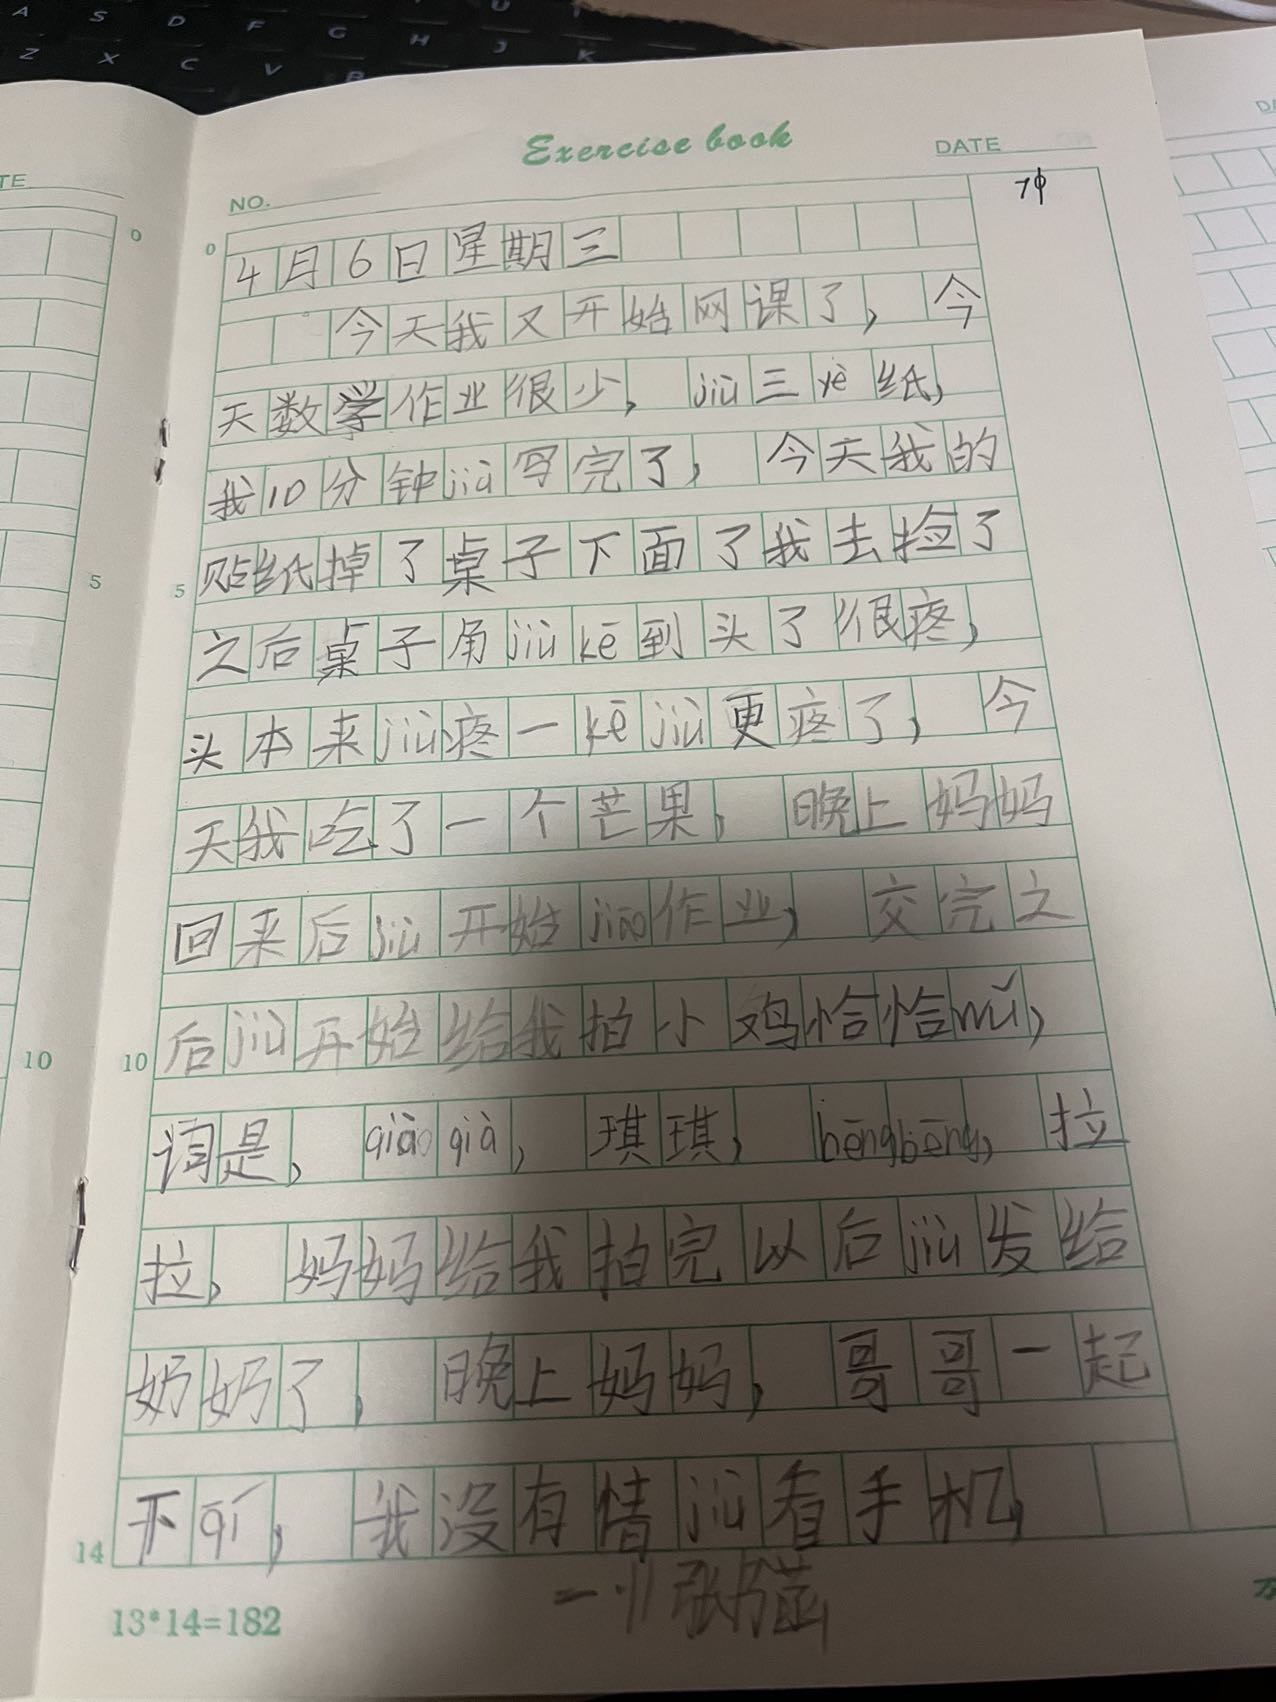 Exercise book
NO.
DATE
4月6日星期三
今天我又开始网课了，今
天数学作业很少，jiù三yè纸，
我10分钟jiù写完了，今天我的
贴纸掉了桌子下面了我去捡了
之后桌子角jiù kē到头了很疼，
头本来jiù疼一kē jiù更疼了，今
天我吃了一个芒果，晚上妈妈
回来后jiù开始jiāo作业，交完之
后jiù开始给我拍小鸡恰恰wǔ，
词是，qiào qià，琪琪，bēngbēng，拉
拉，妈妈给我拍完以后jiù发给
奶奶了，晚上妈妈，哥哥一起
下qí，我没有情jiù看手机，
0
5
10
14
13*14=182